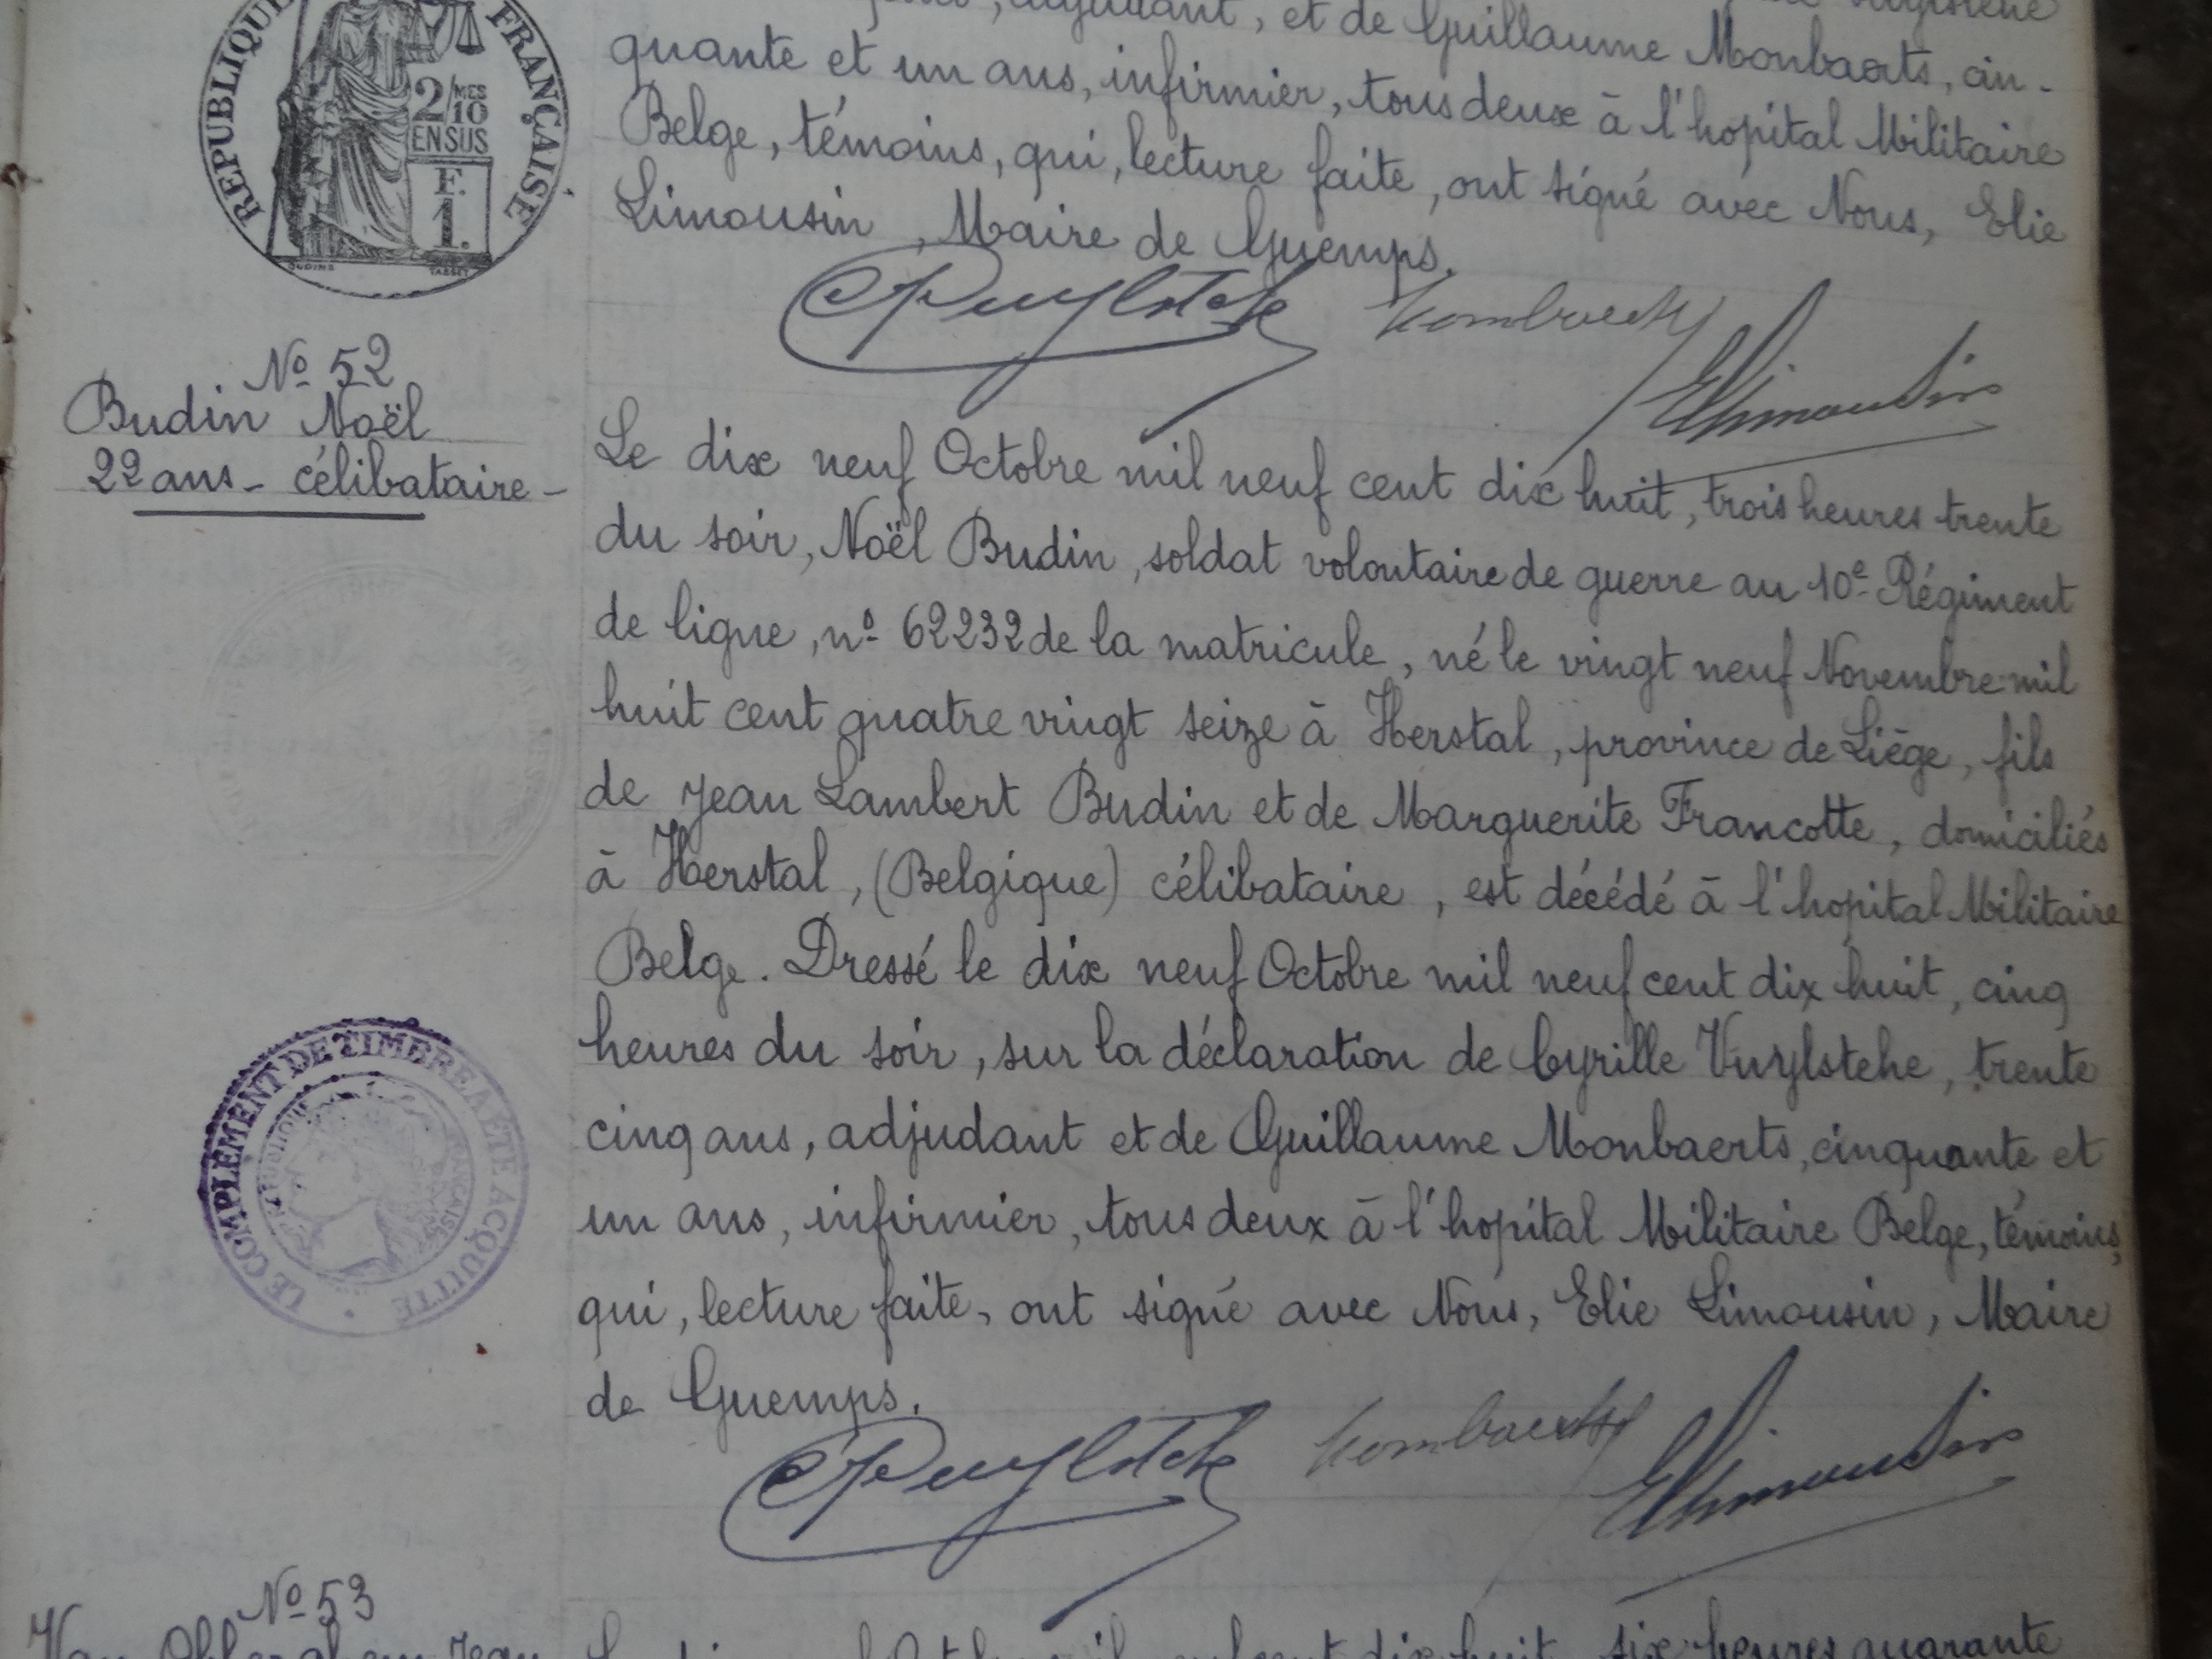 RÉPUBLIQUE FRANÇAISE
2/MES
10
EN SUS
F.
1.
OUDINÉ TASSET
adjudant, et de Guillaume Monbaerts, cin-
quante et un ans, infirmier, tous deux à l'hopital Militaire
Belge, témoins, qui, lecture faite, ont signé avec Nous, Elie
Limousin, Maire de Guemps.
ELimousin
No 52
Budin Noël
22 ans - célibataire -
Le dix neuf Octobre mil neuf cent dix huit, trois heures trente
du soir, Noël Budin, soldat volontaire de guerre au 10e Régiment
de ligne, no 62232 de la matricule, né le vingt neuf Novembre mil
huit cent quatre vingt seize à Herstal, province de Liège, fils
de Jean Lambert Budin et de Marguerite Francotte, domiciliés
à Herstal, (Belgique) célibataire, est décédé à l'hopital Militaire
Belge. Dressé le dix neuf Octobre mil neuf cent dix huit, cinq
heures du soir, sur la déclaration de Cyrille Vuylstehe, trente
cinq ans, adjudant et de Guillaume Monbaerts, cinquante et
un ans, infirmier, tous deux à l'hopital Militaire Belge, témoins,
qui, lecture faite, ont signé avec Nous, Elie Limousin, Maire
de Guemps.
LE COMPLEMENT DE TIMBRE A ETE ACQUITTE
ELimousin
No 53
Jean
dix huit, six heures quarante